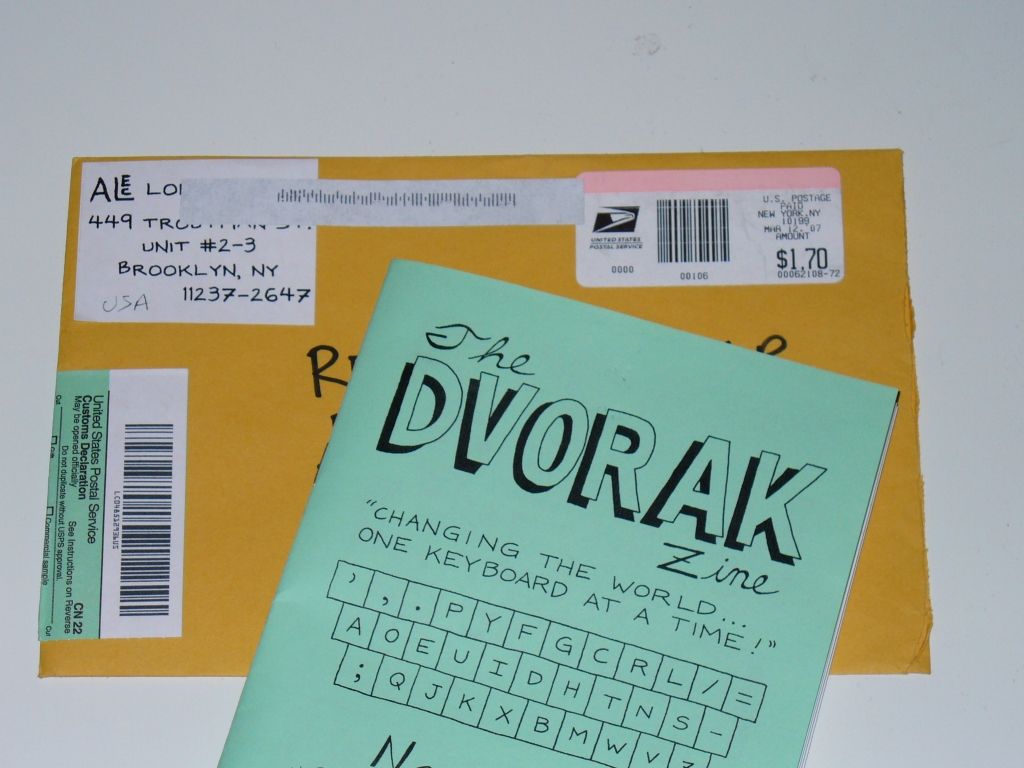 ALE
449
UNIT #2-3
BROOKLYN, NY
11237-2647
USA
UNITED STATES
POSTAL SERVICE
0000
00106
U.S. POSTAGE
PAID
NEW YORK,NY
10199
MAR 12, 07
AMOUNT
$1.70
00062108-72
United States Postal Service
Customs Declaration
May be opened officially
Do not duplicate without USPS approval.
See Instructions on Reverse
CN 22
Commercial sample
The
DVORAK
Zine
"CHANGING THE WORLD...
ONE KEYBOARD AT A TIME!"
' , . P Y F G C R L / =
A O E U I D H T N S -
; Q J K X B M W V Z